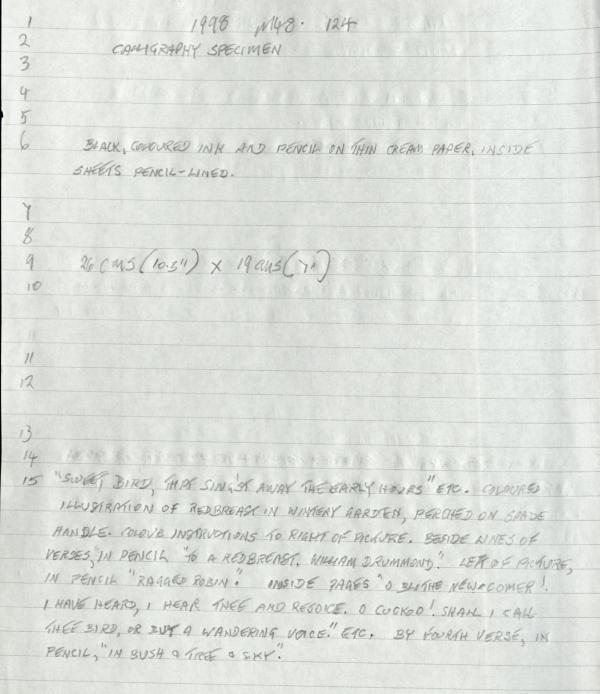 1 1998 M48. 124
2 CALLIGRAPHY SPECIMEN
3
4
5
6 BLACK, COLOURED INK AND PENCIL ON THIN CREAM PAPER, INSIDE
SHEETS PENCIL-LINED.
7
8
9 26 cms (10.3") x 19 cms (7")
10
11
12
13
14
15 "SWEET BIRD, THAT SING'ST AWAY THE EARLY HOURS" ETC. COLOURED
ILLUSTRATION OF REDBREAST IN WINTERY GARDEN, PERCHED ON SPADE
HANDLE. COLOUR INSTRUCTIONS TO RIGHT OF PICTURE. BESIDE LINES OF
VERSES, IN PENCIL "TO A REDBREAST. WILLIAM DRUMMOND." LEFT OF PICTURE,
IN PENCIL "RAGGED ROBIN". INSIDE PAGES "O BLITHE NEW-COMER!
I HAVE HEARD, I HEAR THEE AND REJOICE. O CUCKOO! SHALL I CALL
THEE BIRD, OR BUT A WANDERING VOICE." ETC. BY FOURTH VERSE, IN
PENCIL, "IN BUSH & TREE & SKY".